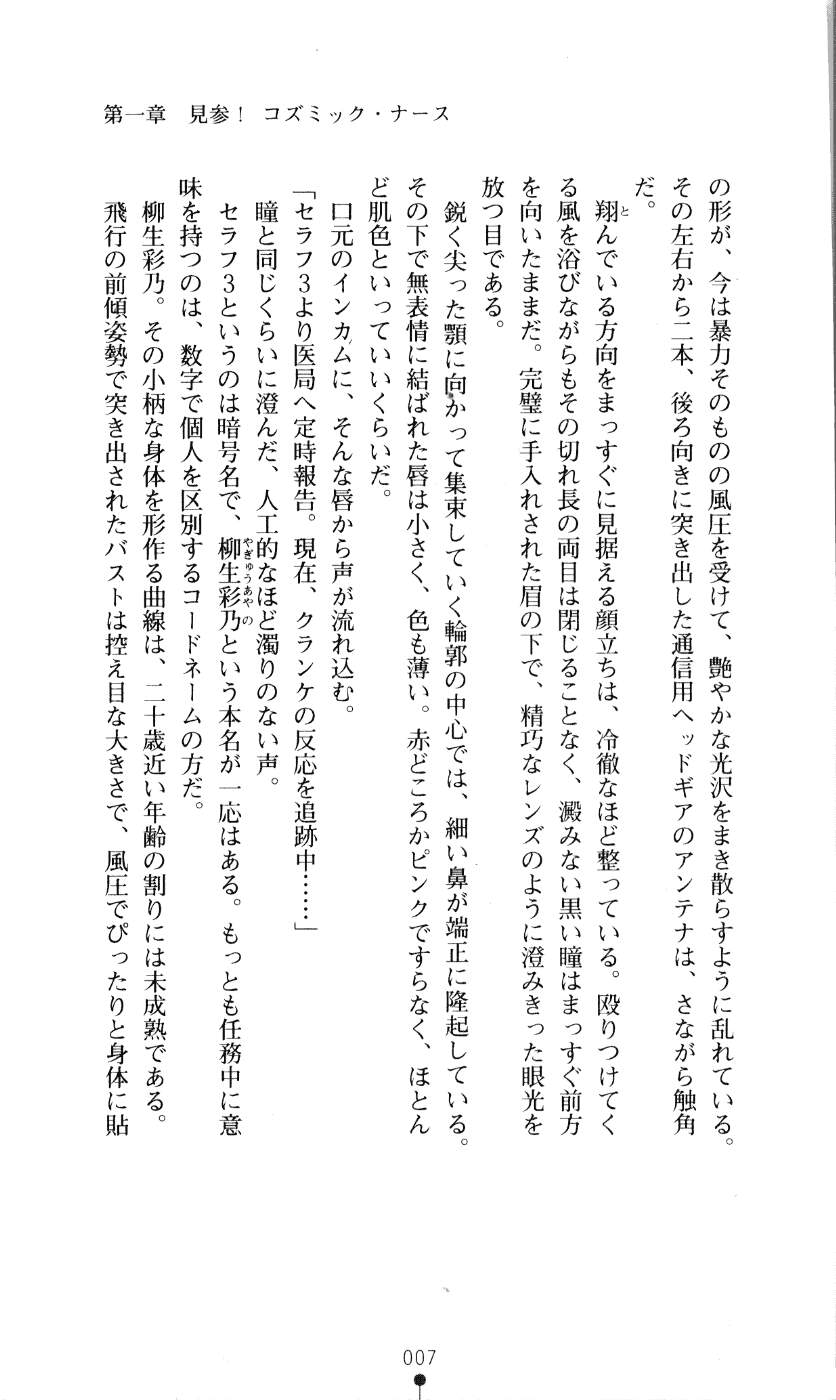 第一章　見参！　コズミック・ナース
の形が、今は暴力そのものの風圧を受けて、艶やかな光沢をまき散らすように乱れている。
その左右から二本、後ろ向きに突き出した通信用ヘッドギアのアンテナは、さながら触角
だ。
　翔んでいる方向をまっすぐに見据える顔立ちは、冷徹なほど整っている。殴りつけてく
る風を浴びながらもその切れ長の両目は閉じることなく、澱みない黒い瞳はまっすぐ前方
を向いたままだ。完璧に手入れされた眉の下で、精巧なレンズのように澄みきった眼光を
放つ目である。
　鋭く尖った顎に向かって集束していく輪郭の中心では、細い鼻が端正に隆起している。
その下で無表情に結ばれた唇は小さく、色も薄い。赤どころかピンクですらなく、ほとん
ど肌色といっていいくらいだ。
　口元のインカムに、そんな唇から声が流れ込む。
「セラフ３より医局へ定時報告。現在、クランケの反応を追跡中……」
　瞳と同じくらいに澄んだ、人工的なほど濁りのない声。
　セラフ３というのは暗号名で、柳生彩乃という本名が一応はある。もっとも任務中に意
味を持つのは、数字で個人を区別するコードネームの方だ。
　柳生彩乃。その小柄な身体を形作る曲線は、二十歳近い年齢の割りには未成熟である。
　飛行の前傾姿勢で突き出されたバストは控え目な大きさで、風圧でぴったりと身体に貼
と
やぎゅうあやの
007